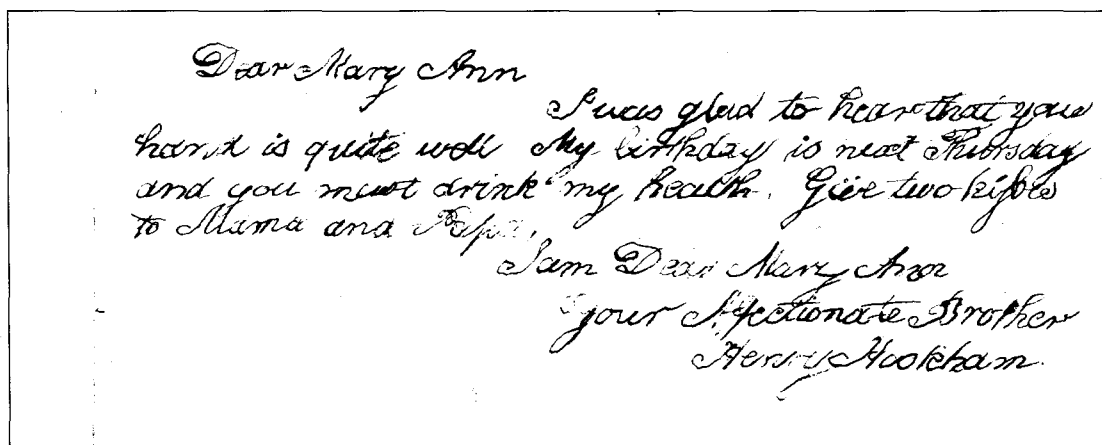 Dear Mary Ann
I was glad to hear that you
hand is quite well My birthday is next Thursday
and you must drink my health. Give two kisses
to Mama and Papa.
I am Dear Mary Ann
your Affectionate Brother
Henry Hookham